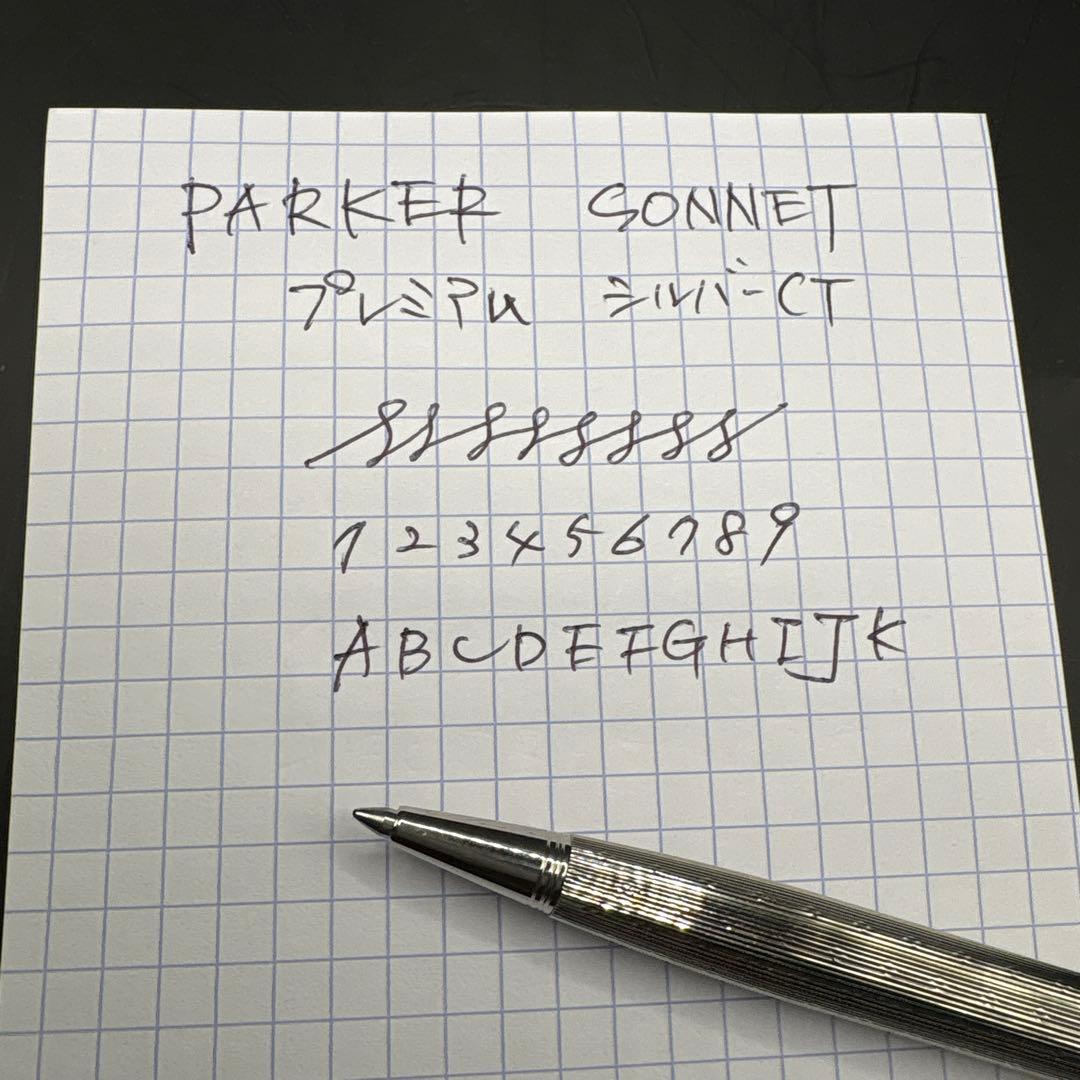 PARKER SONNET
プレミアム シルバーCT
1 2 3 4 5 6 7 8 9
A B C D E F G H I J K